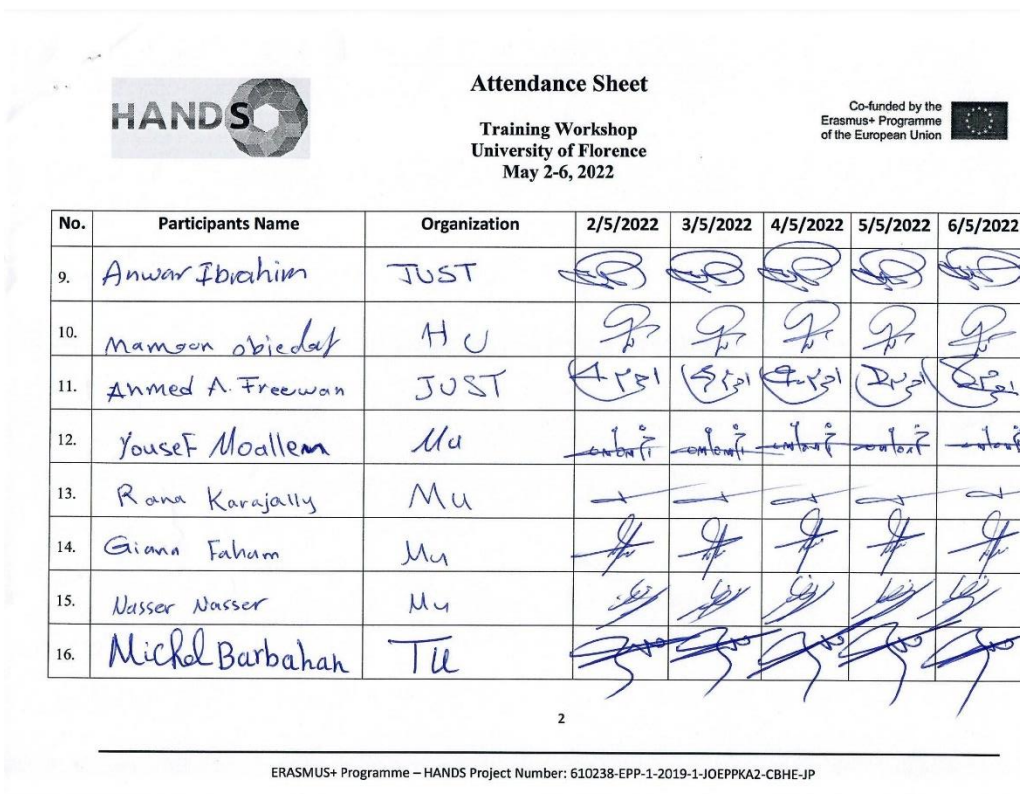 HANDS
Attendance Sheet
Training Workshop
University of Florence
May 2-6, 2022
Co-funded by the
Erasmus+ Programme
of the European Union
No. Participants Name Organization 2/5/2022 3/5/2022 4/5/2022 5/5/2022 6/5/2022
9. Anwar Ibrahim JUST
10. Mamoon obiedat HU
11. Ahmed A. Freewan JUST
12. Yousef Moallem Mu
13. Rana Karajally Mu
14. Giana Faham Mu
15. Nasser Nasser Mu
16. Michel Barbahan TU
2
ERASMUS+ Programme – HANDS Project Number: 610238-EPP-1-2019-1-JOEPPKA2-CBHE-JP